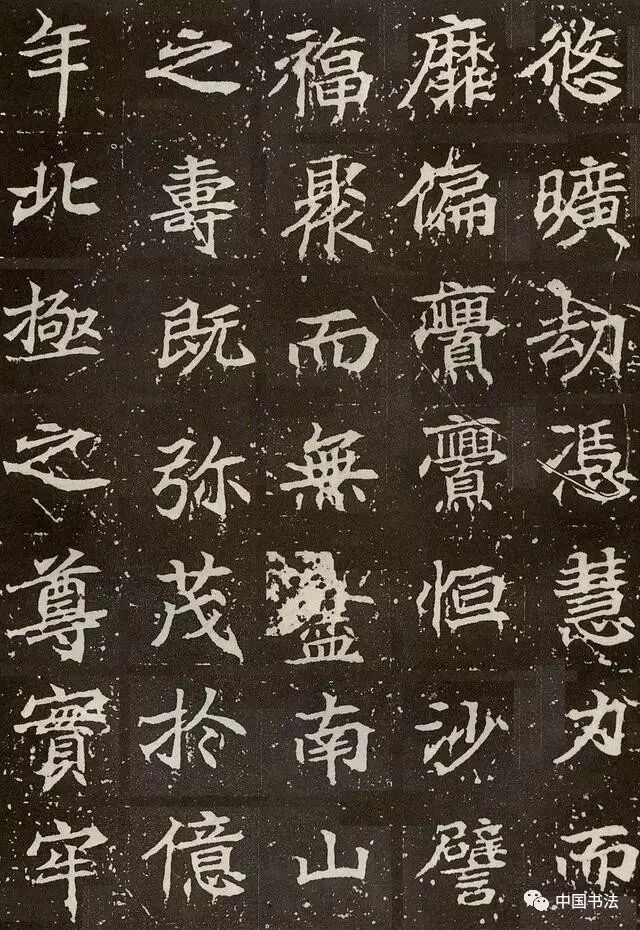 悠曠劫憑慧力而
靡偏亹亹恒沙譬
福聚而無盡南山
之壽既弥茂於億
年北極之尊實牢
中国书法